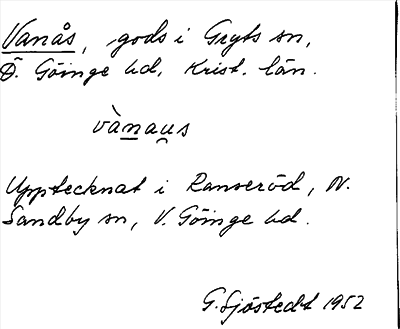 Vanås, gods i Gryts sn,
Ö. Göinge hd, Krist. län.
vànau̯s
Upptecknat i Ranseröd, N.
Sandby sn, V. Göinge hd.
G. Sjöstedt 1952